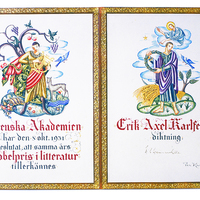 enska Akademien
har den 8 okt. 1931
eslutat, att samma års
obelpris i litteratur
tillerkännes
Erik Axel Karlfe
diktning.